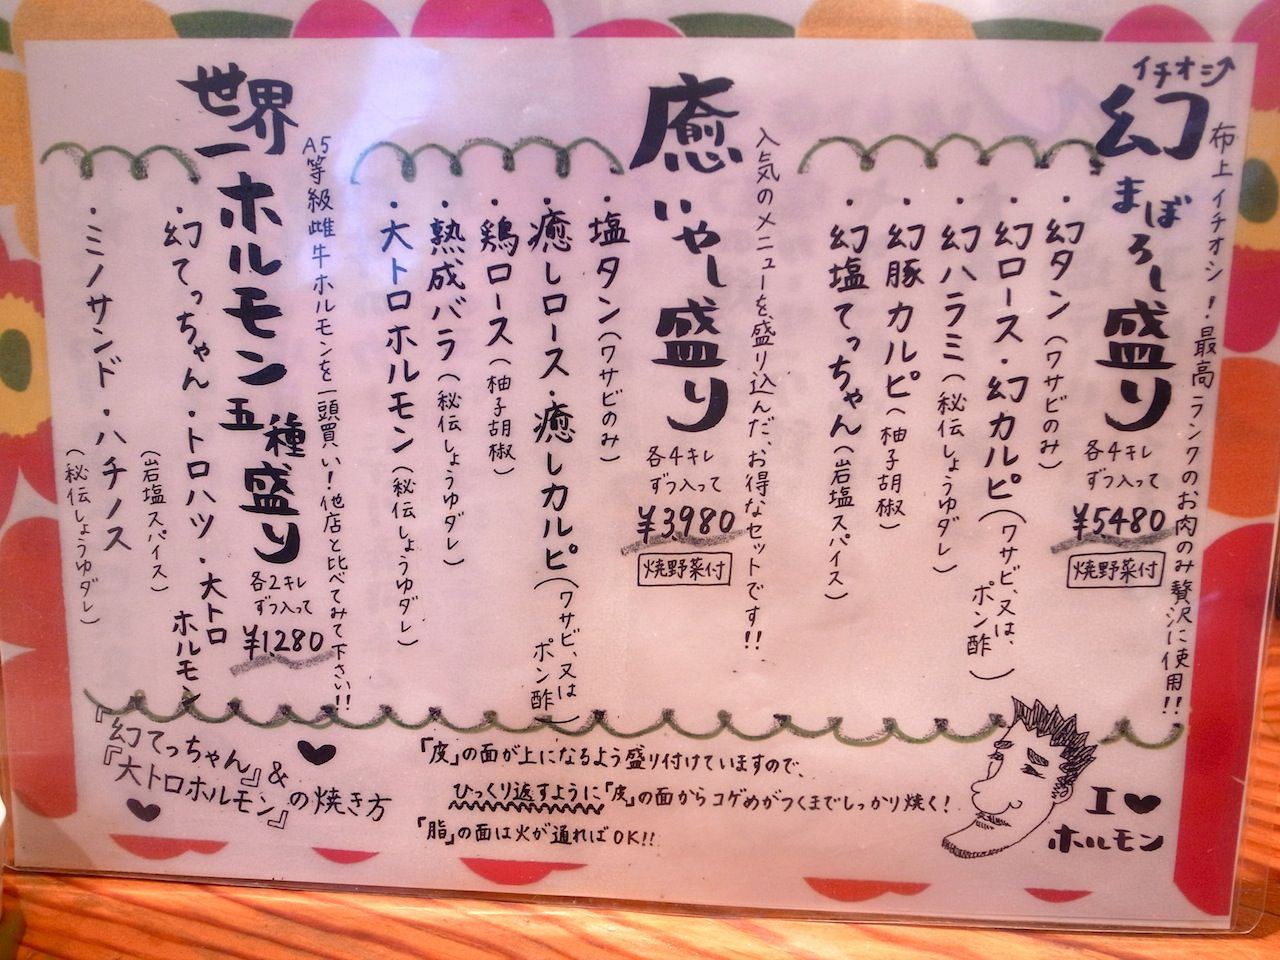 イチオシ↗
幻まぼろし盛り
各4キレ
ずつ入って
¥5,480
焼野菜付
布上イチオシ!最高ランクのお肉のみ贅沢に使用!!
・幻タン(ワサビのみ)
・幻ロース・幻カルピ(ワサビ、又は、
ポン酢)
・幻ハラミ(秘伝しょうゆダレ)
・幻豚カルピ(柚子胡椒)
・幻塩てっちゃん(岩塩スパイス)
癒いやし盛り
各4キレ
ずつ入って
¥3,980
焼野菜付
人気のメニューを、盛り込んだ、お得なセットです!!
・塩タン(ワサビのみ)
・癒しロース・癒しカルピ(ワサビ、又は
ポン酢)
・鶏ロース(柚子胡椒)
・熟成バラ(秘伝しょうゆダレ)
・大トロホルモン(秘伝しょうゆダレ)
世界一ホルモン五種盛り
各2キレ
ずつ入って
¥1,280
A5等級雌牛ホルモンを一頭買い!他店と比べてみて下さい!!
・幻てっちゃん・トロハツ・大トロ
ホルモン
(岩塩スパイス)
・ミノサンド・ハチノス
(秘伝しょうゆダレ)
『幻てっちゃん』&
『大トロホルモン』の焼き方
「皮」の面が上になるよう盛り付けていますので、
ひっくり返すように「皮」の面からコゲめがつくまでしっかり焼く!
「脂」の面は火が通ればOK!!
I♥
ホルモン